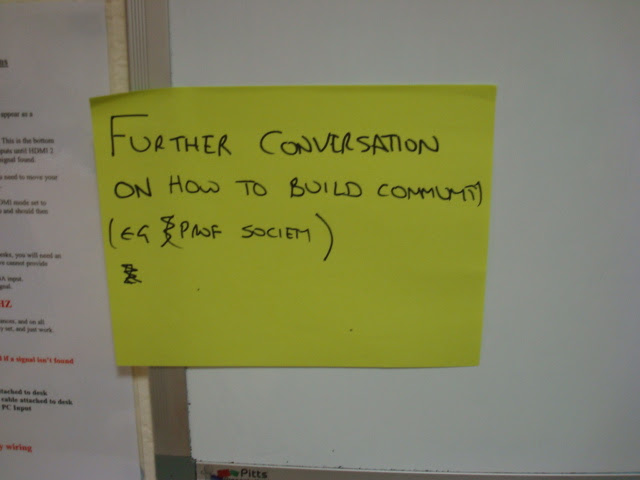 appear as a
This is the bottom
puts until HDMI 2
signal found.
need to move your
DMI mode set to
and should then
you will need an
cannot provide
input.
HZ
and on all
set, and just work.
if a signal isn't found
attached to desk
cable attached to desk
PC Input
wiring
FURTHER CONVERSATION
ON HOW TO BUILD COMMUNITY
(EG PROF SOCIETY)
Pitts